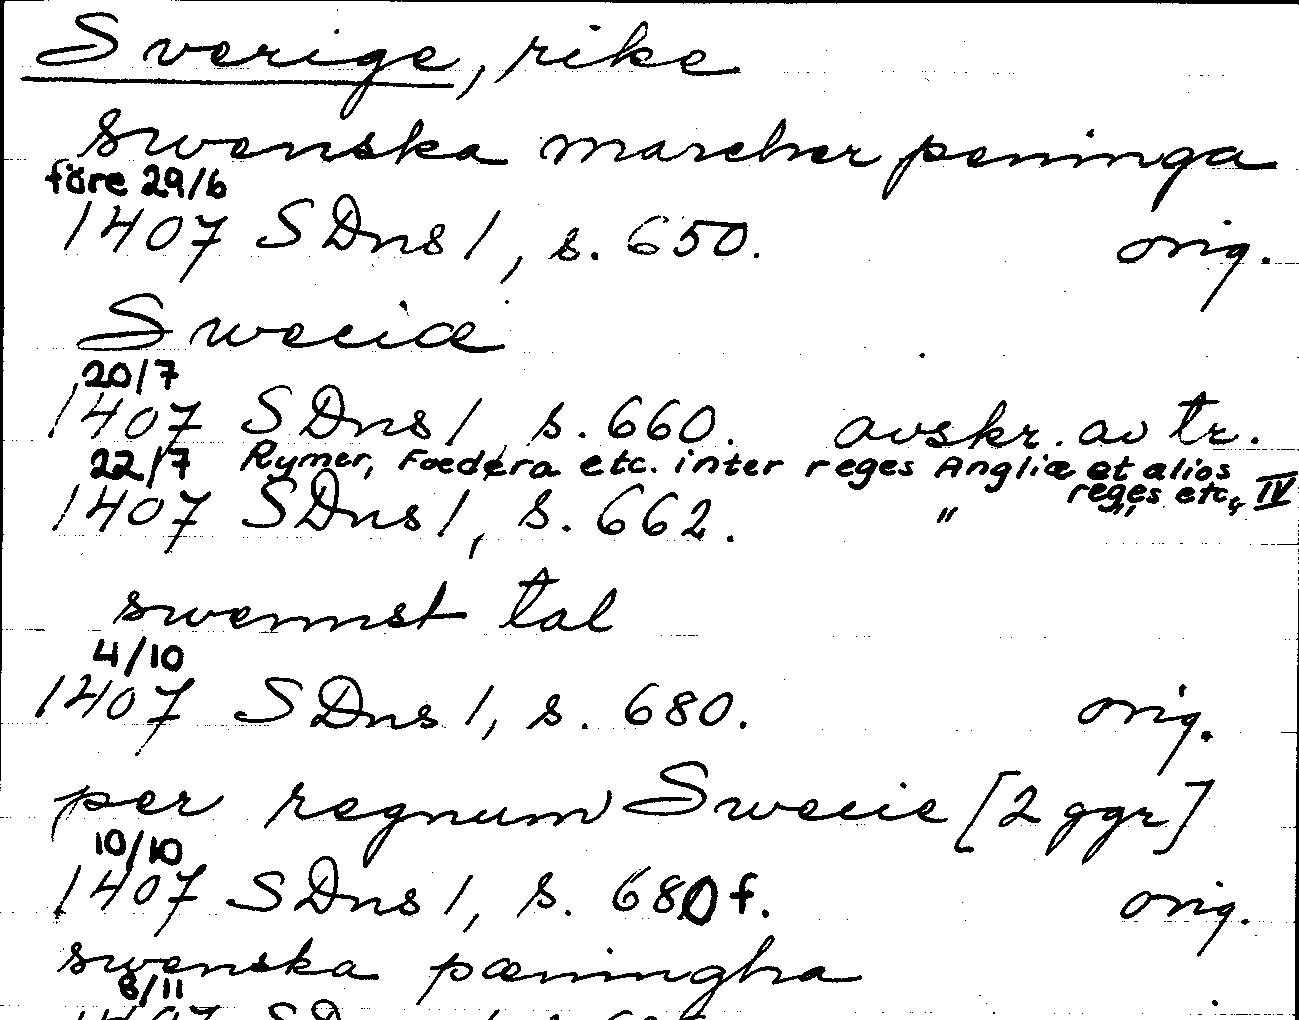 Sverige, rike
swenska marcher peninga
före 29/6
1407 SDns 1, s. 650. orig.
Sweciæ
20/7
1407 SDns 1, s. 660. avskr. av tr.
22/7 Rymer, Foedera etc. inter reges Angliæ et alios
reges etc., IV
1407 SDns 1, s. 662. " "
swennst tal
4/10
1407 SDns 1, s. 680. orig.
per regnum Swecie [2 ggr]
10/10
1407 SDns 1, s. 680 f. orig.
swenska pæningha
8/11